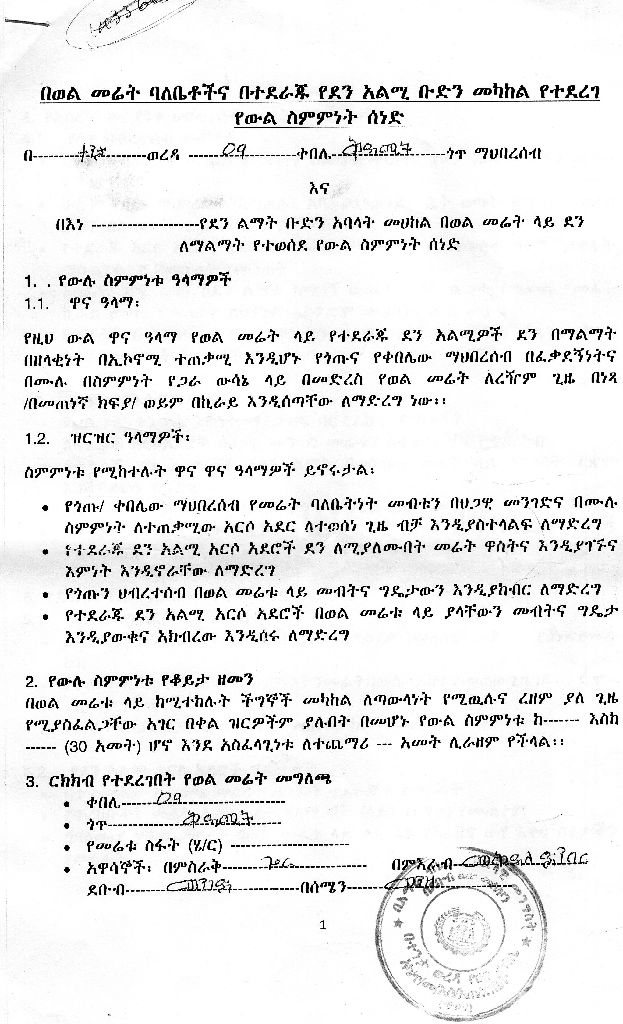 በወል መሬት ባለቤቶችና በተደራጁ የደን አልሚ ቡድን መካከል የተደረገ
የውል ስምምነት ሰነድ
በ----------------ወረዳ ------09----------ቀበሌ----------------ጎጥ ማህበረሰብ
እና
በእነ ---------------------የደን ልማት ቡድን አባላት መሀከል በወል መሬት ላይ ደን
ለማልማት የተወሰደ የውል ስምምነት ሰነድ
1. . የውሉ ስምምነቱ ዓላማዎች
1.1. ዋና ዓላማ፡
የዚህ ውል ዋና ዓላማ የወል መሬት ላይ የተደራጁ ደን አልሚዎች ደን በማልማት
በዘላቂነት በኢኮኖሚ ተጠቃሚ እንዲሆኑ የጎጡና የቀበሌው ማህበረሰብ በፈቃደኝነትና
በሙሉ በስምምነት የጋራ ውሳኔ ላይ በመድረስ የወል መሬት ለረዥም ጊዜ በነጻ
/በመጠነኛ ክፍያ/ ወይም በኪራይ እንዲሰጣቸው ለማድረግ ነው፡፡
1.2. ዝርዝር ዓላማዎች፡
ስምምነቱ የሚከተሉት ዋና ዋና ዓላማዎች ይኖሩታል፡
• የጎጡ/ ቀበሌው ማህበረሰብ የመሬት ባለቤትነት መብቱን በህጋዊ መንገድና በሙሉ
ስምምነት ለተጠቃሚው አርሶ አደር ለተወሰነ ጊዜ ብቻ እንዲያስተላልፍ ለማድረግ
• የተደራጁ ደን አልሚ አርሶ አደሮች ደን ለሚያለሙበት መሬት ዋስትና እንዲያገኙና
እምነት እንዲኖራቸው ለማድረግ
• የጎጡን ህብረተሰብ በወል መሬቱ ላይ መብትና ግዴታውን እንዲያከብር ለማድረግ
• የተደራጁ ደን አልሚ አርሶ አደሮች በወል መሬቱ ላይ ያላቸውን መብትና ግዴታ
እንዲያውቁና አክብረው እንዲሰሩ ለማድረግ
2. የውሉ ስምምነቱ የቆይታ ዘመን
በወል መሬቱ ላይ ከሚተከሉት ችግኞች መካከል ለጣውላነት የሚዉሉና ረዘም ያለ ጊዜ
የሚያስፈልጋቸው አገር በቀል ዝርዎችም ያሉበት በመሆኑ የውል ስምምነቱ ከ------- እስከ
------ (30 አመት) ሆኖ እንደ አስፈላጊነቱ ለተጨማሪ --- አመት ሊራዘም የችላል፡፡
3. ርክክብ የተደረገበት የወል መሬት መግለጫ
• ቀበሌ------09------------------
• ጎጥ----------------------------
• የመሬቱ ስፋት (ሄ/ር) --------------------
• አዋሳኞች፡ በምስራቅ------------------------ በምእራብ------------------
ደቡብ------------------------በሰሜን------------------------
1